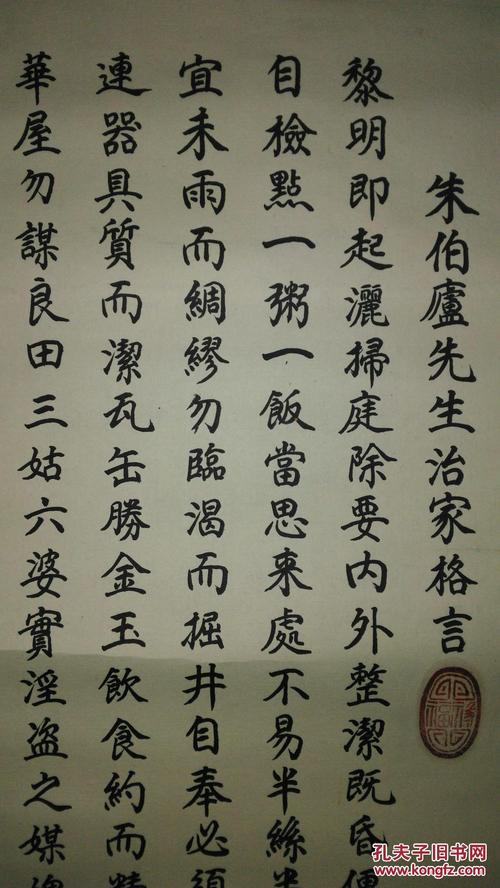 朱伯廬先生治家格言
黎明即起灑掃庭除要內外整潔既昏便
自檢點一粥一飯當思来處不易半絲半
宜未雨而綢繆勿臨渴而掘井自奉必須
連器具質而潔瓦缶勝金玉飲食約而精
華屋勿謀良田三姑六婆實淫盜之媒婢
孔夫子旧书网
www.kongfz.com